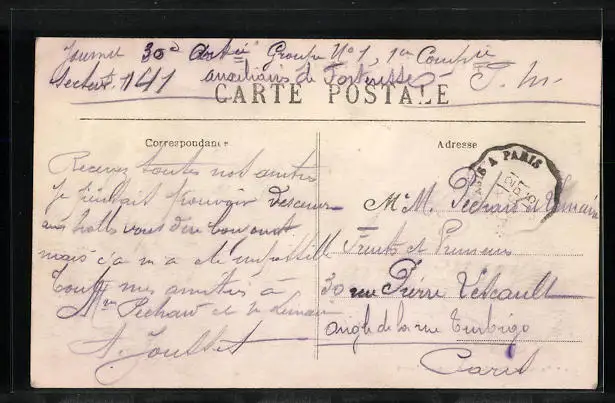 30e Artie Groupe N°1, 1re Compie
Secteur 141 auxiliaires de Forteresse S. M.
CARTE POSTALE
Correspondance
Adresse
A PARIS
Recevez toutes nos amitiés
pouvoir descendre
aux halles vous dire bonjour
mais ça m'a été impossible
Toutes mes amitiés à
Mme Pechard et
A. Jousset
Mr M. Pechard &
Fruits et Primeurs
30 rue Pierre Lescault
angle de la rue Turbigo
Paris